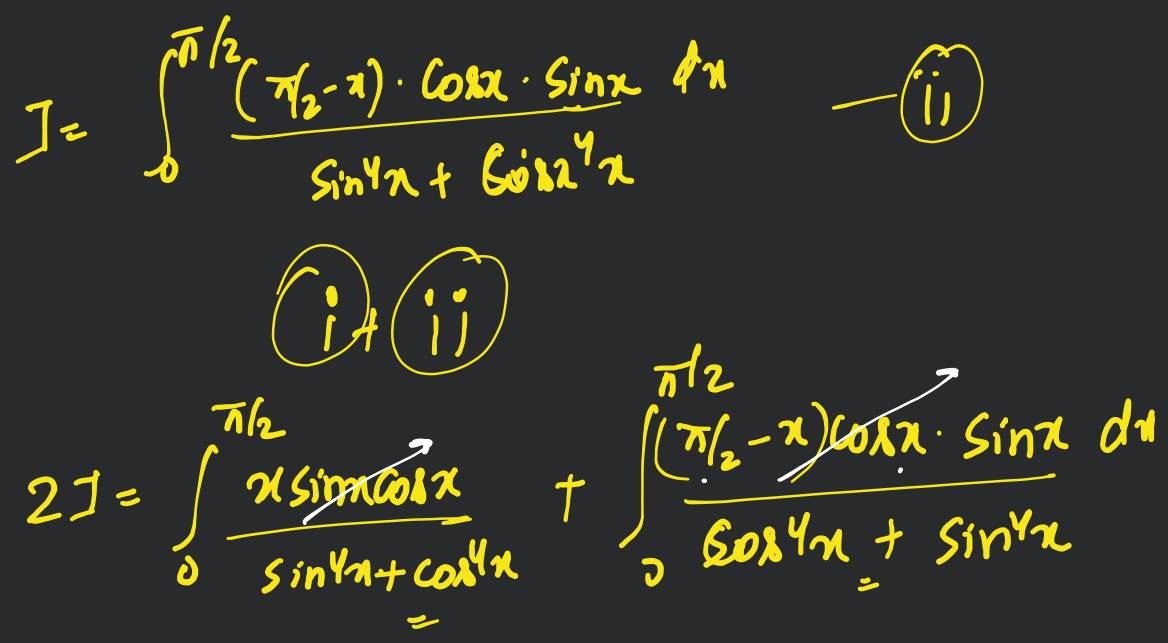 I = ∫₀^π/2 (π/2 - x) · cosx · sinx dx / sin⁴x + cos⁴x — (ii)
(i) + (ii)
2I = ∫₀^π/2 x sinx cosx / sin⁴x + cos⁴x + ∫₀^π/2 (π/2 - x) cosx · sinx dx / cos⁴x + sin⁴x